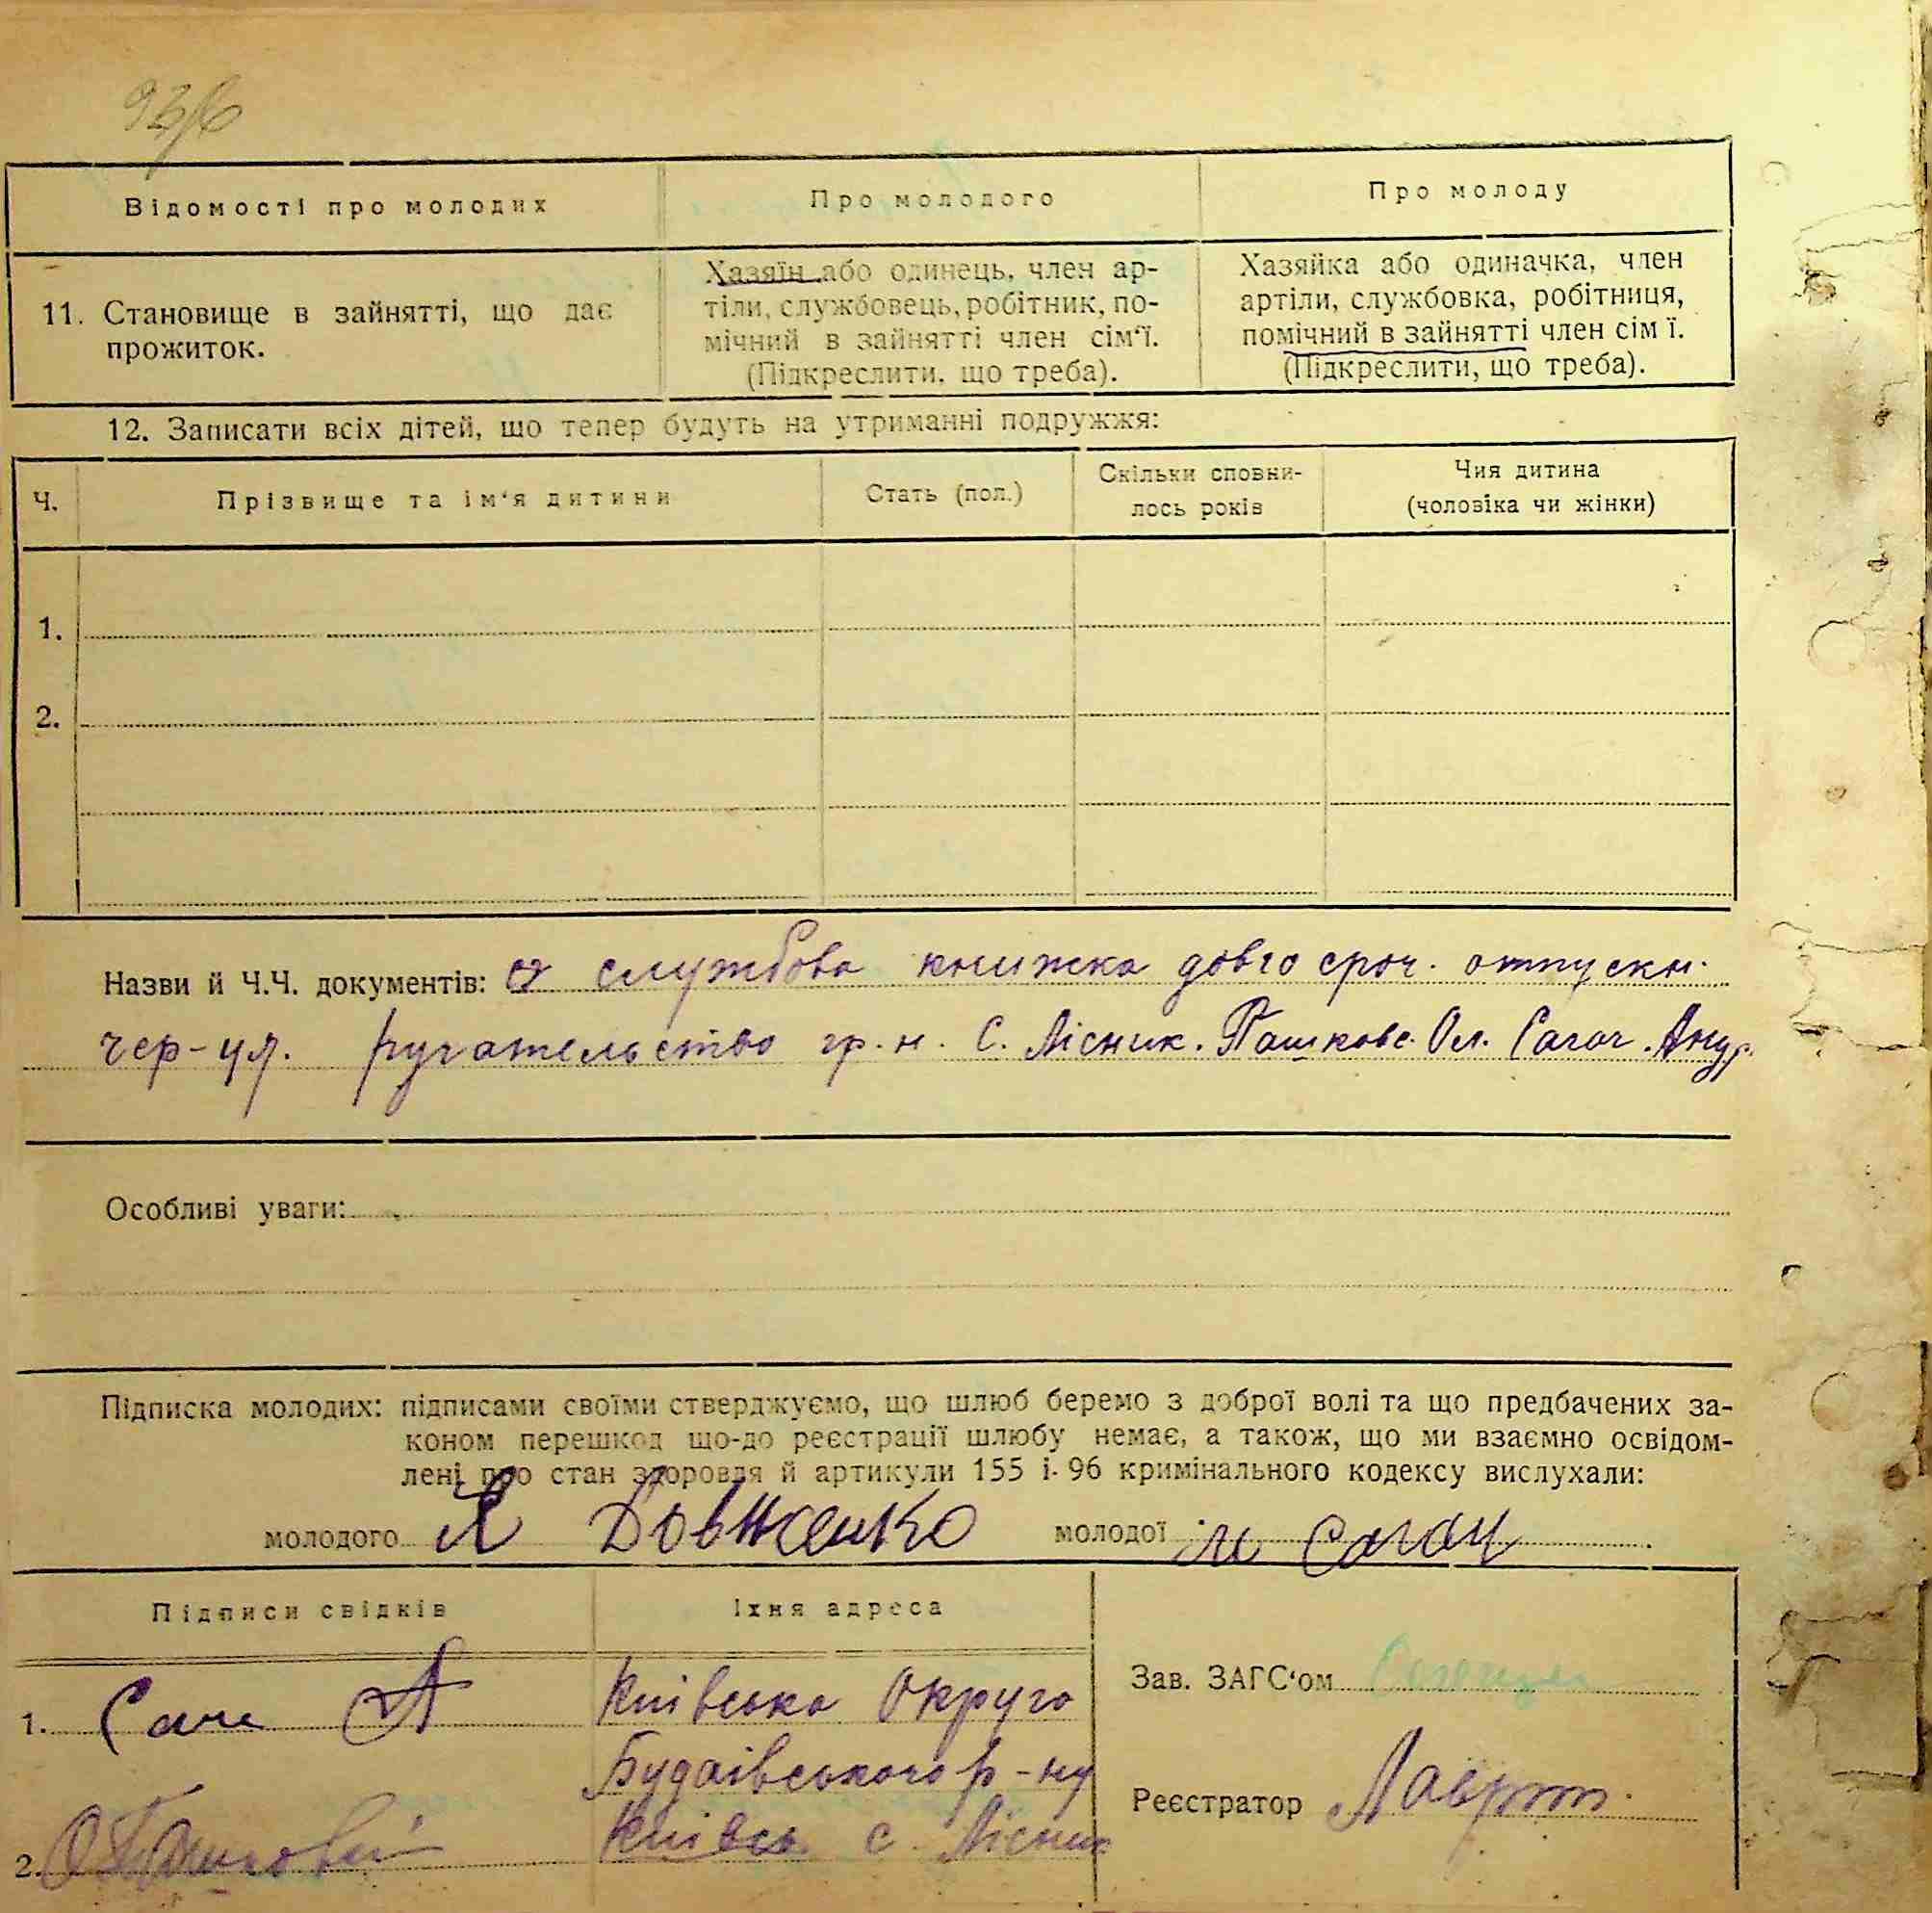 Відомості про молодих
Про молодого
Про молоду
11. Становище в зайнятті, що дає
прожиток.
Хазяїн або одинець, член ар-
тіли, службовець, робітник, по-
мічний в зайнятті член сім'ї.
(Підкреслити, що треба).
Хазяйка або одиначка, член
артіли, службовка, робітниця,
помічний в зайнятті член сім ї.
(Підкреслити, що треба).
12. Записати всіх дітей, що тепер будуть на утриманні подружжя:
Ч.
Прізвище та ім'я дитини
Стать (пол.)
Скільки сповни-
лось років
Чия дитина
(чоловіка чи жінки)
1.
2.
Назви й Ч.Ч. документів: службова книжка довго сроч. отпускн.
чер-уд. ручательство гр. н. С. Лісник. Пашковс. Ол. Сагач. Андр.
Особливі уваги:
Підписка молодих: підписами своїми стверджуємо, що шлюб беремо з доброї волі та що предбачених за-
коном перешкод що-до реєстрації шлюбу немає, а також, що ми взаємно освідом-
лені про стан здоровля й артикули 155 і- 96 кримінального кодексу вислухали:
молодого Я Довженко молодої М Сагач
Підписи свідків
Їхня адреса
1. Сага А
Київська Округа
Будаївського р-ну
2.
Київсь. с. Лісник
Зав. ЗАГС'ом
Реєстратор Лаврот.